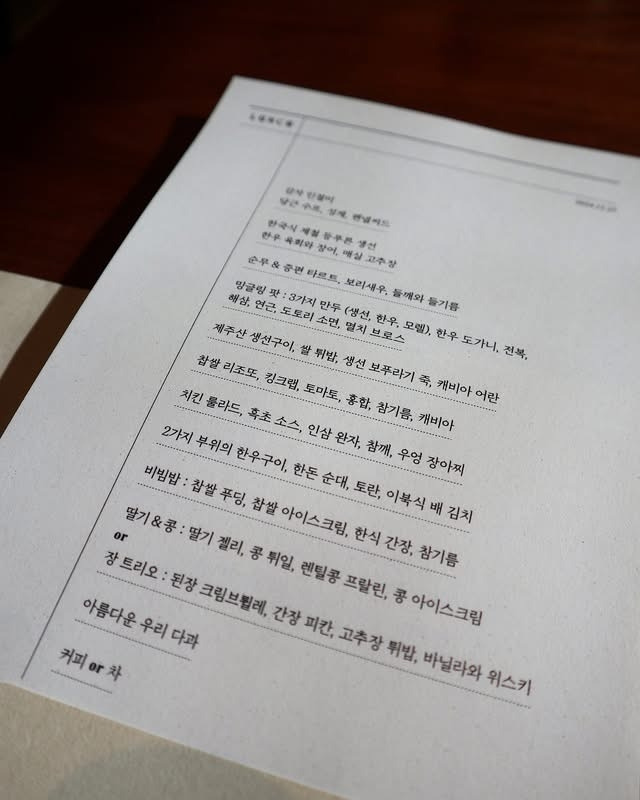 감자 인절미
당근 수프, 성게, 펜넬씨드
한국식 제철 등푸른 생선
한우 육회와 장어, 매실 고추장
순무 & 증편 타르트, 보리새우, 들깨와 들기름
밍글링 팟 : 3가지 만두 (생선, 한우, 모렐), 한우 도가니, 전복,
해삼, 연근, 도토리 소면, 멸치 브로스
제주산 생선구이, 쌀 튀밥, 생선 보푸라기 죽, 캐비아 어란
찹쌀 리조또, 킹크랩, 토마토, 홍합, 참기름, 캐비아
치킨 룰라드, 흑초 소스, 인삼 완자, 참깨, 우엉 장아찌
2가지 부위의 한우구이, 한돈 순대, 토란, 이북식 배 김치
비빔밥 : 찹쌀 푸딩, 찹쌀 아이스크림, 한식 간장, 참기름
딸기 & 콩 : 딸기 젤리, 콩 튀일, 렌틸콩 프랄린, 콩 아이스크림
or
장 트리오 : 된장 크림브륄레, 간장 피칸, 고추장 튀밥, 바닐라와 위스키
아름다운 우리 다과
커피 or 차